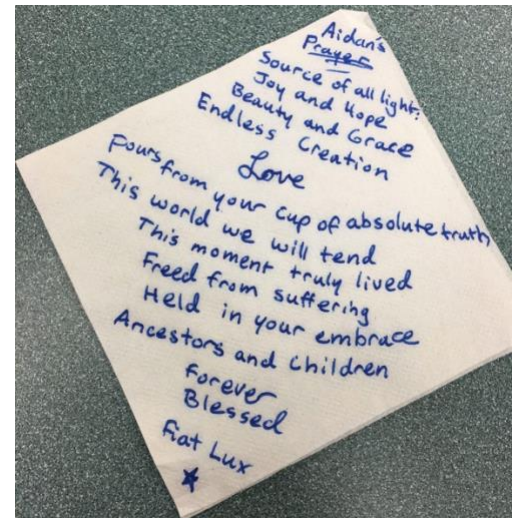 Aidan's
Prayer
Source of all light:
Joy and Hope
Beauty and Grace
Endless Creation
Love
Pours from your cup of absolute truth
This world we will tend
This moment truly lived
Freed from suffering
Held in your embrace
Ancestors and Children
Forever
Blessed
Fiat Lux